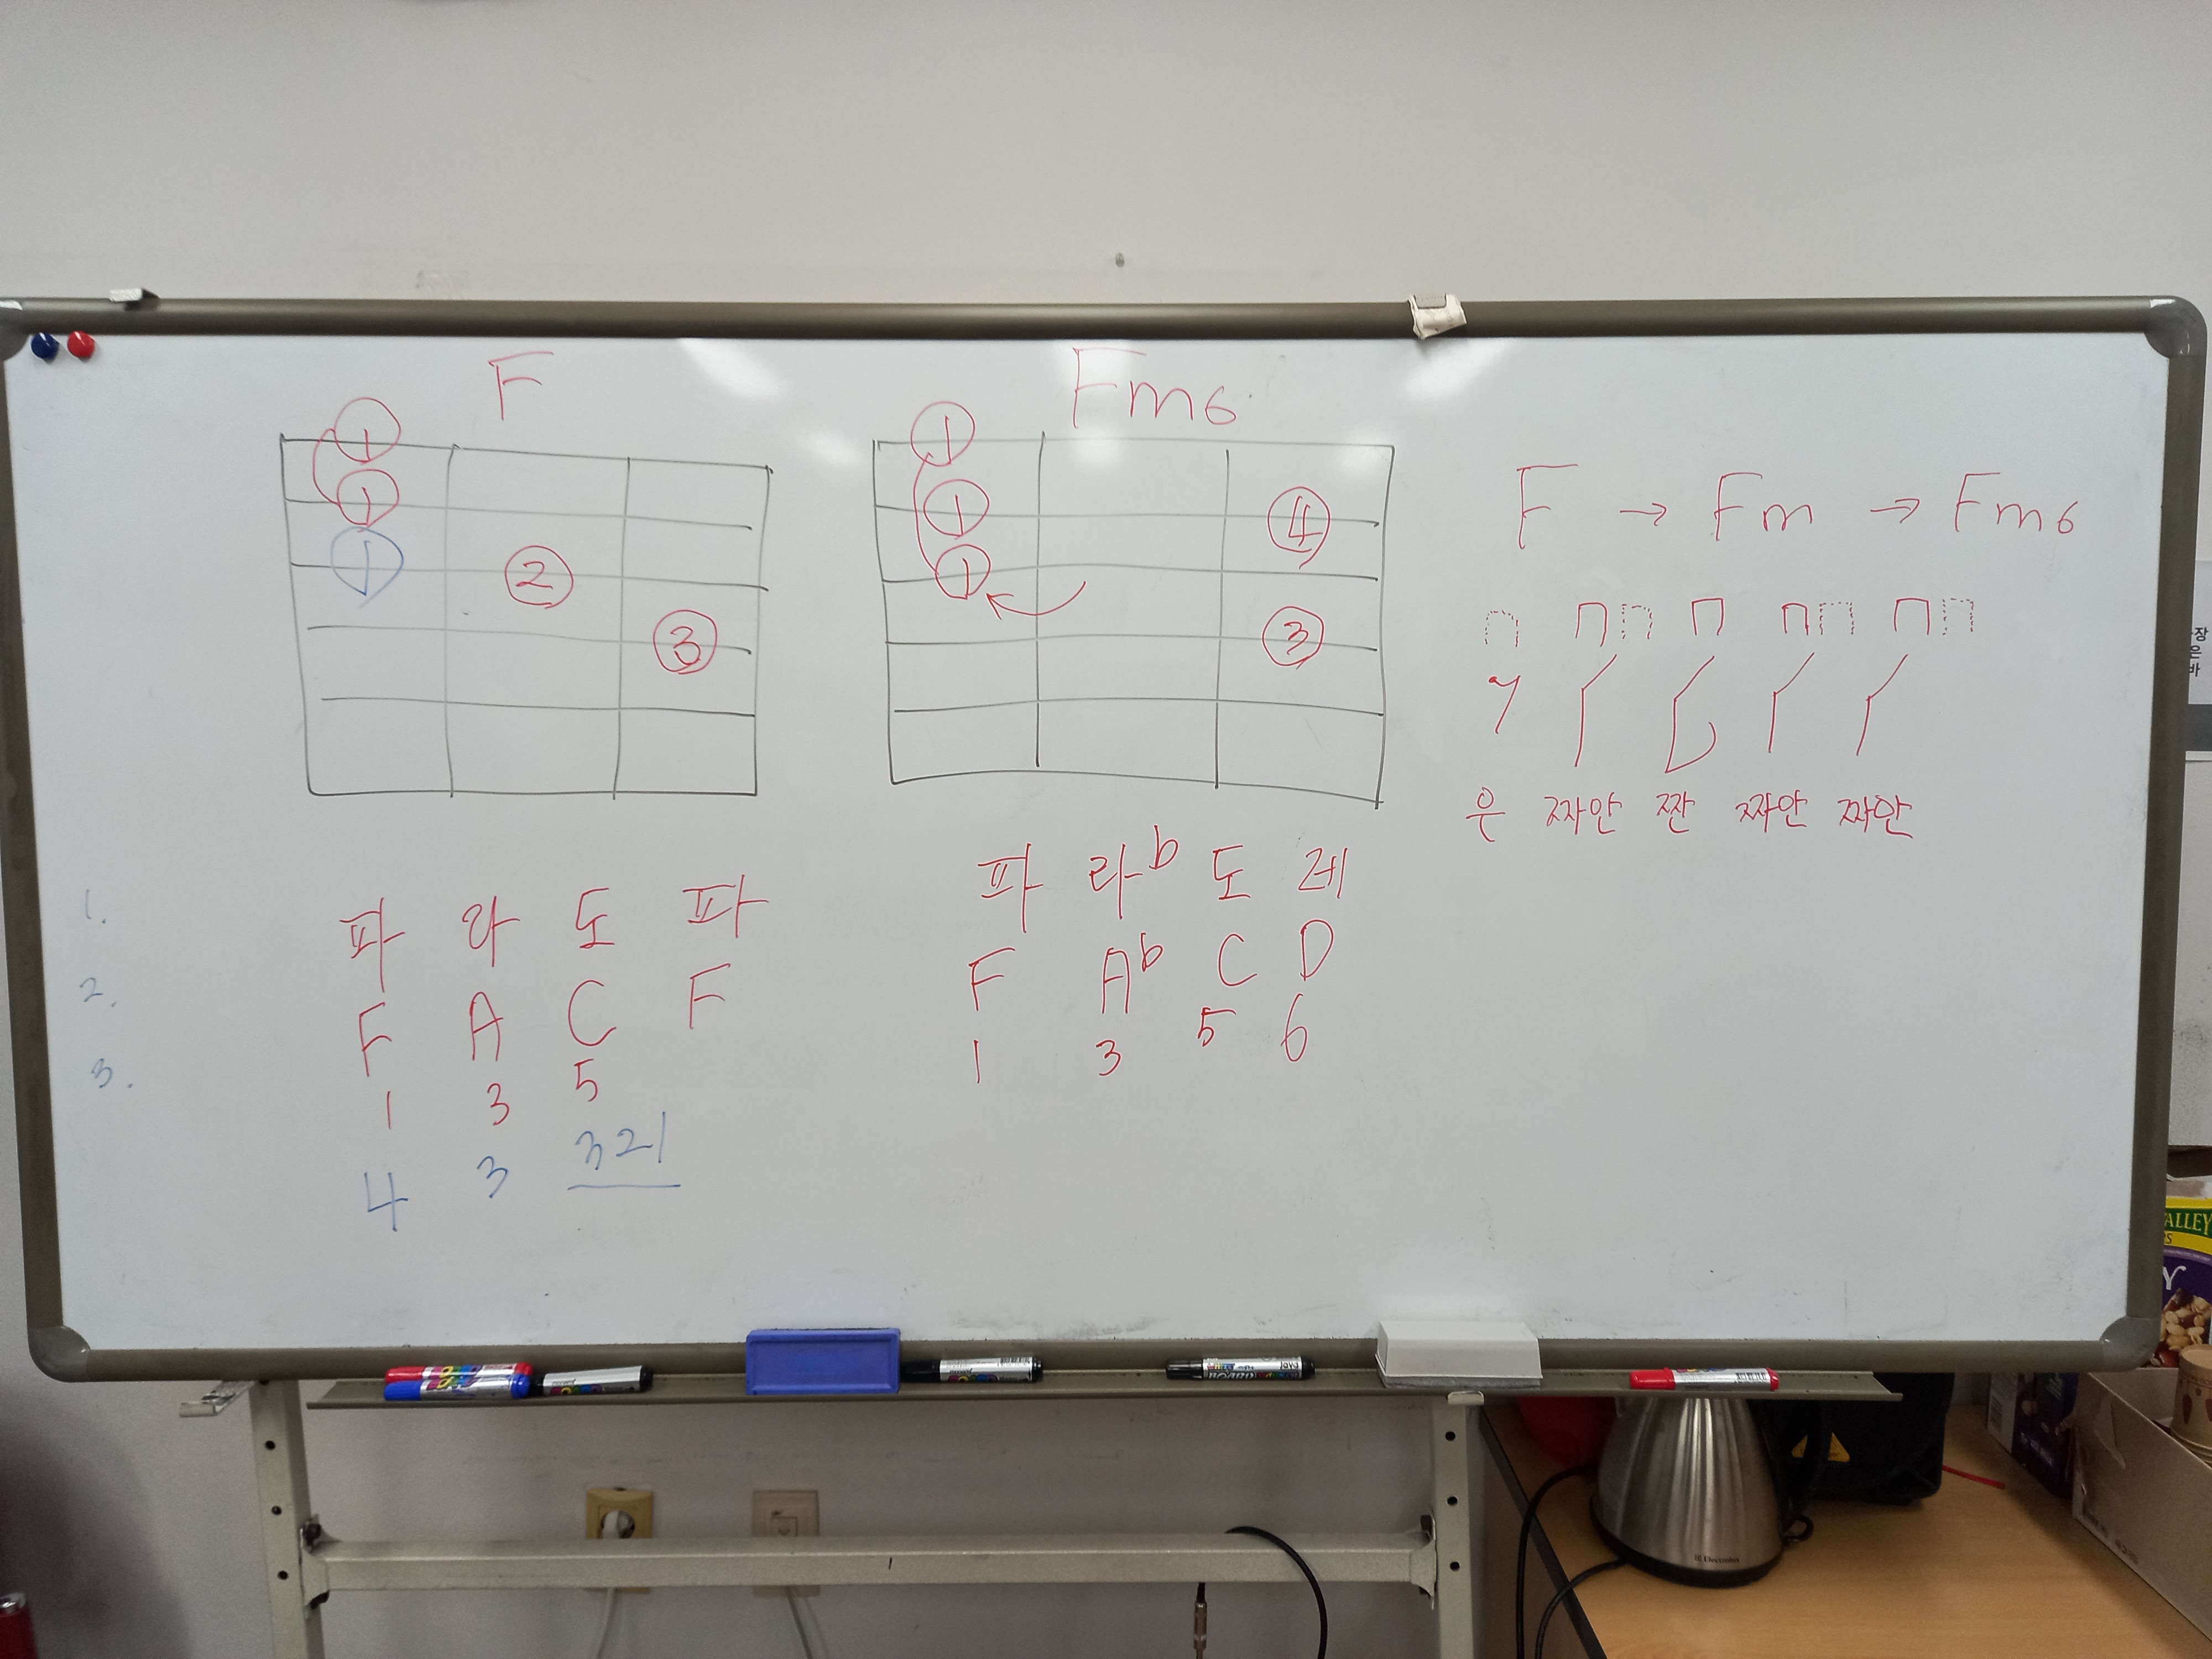 F
1
1
1
2
3
파 라 도 파
F A C F
1 3 5
4 3 321
1.
2.
3.
Fm6
1
1
4
1
3
파 라b 도 레
F Ab C D
1 3 5 6
F → Fm → Fm6
은 짜안 짠 짜안 짜안
장
은
바
ALLEY
Electrolux